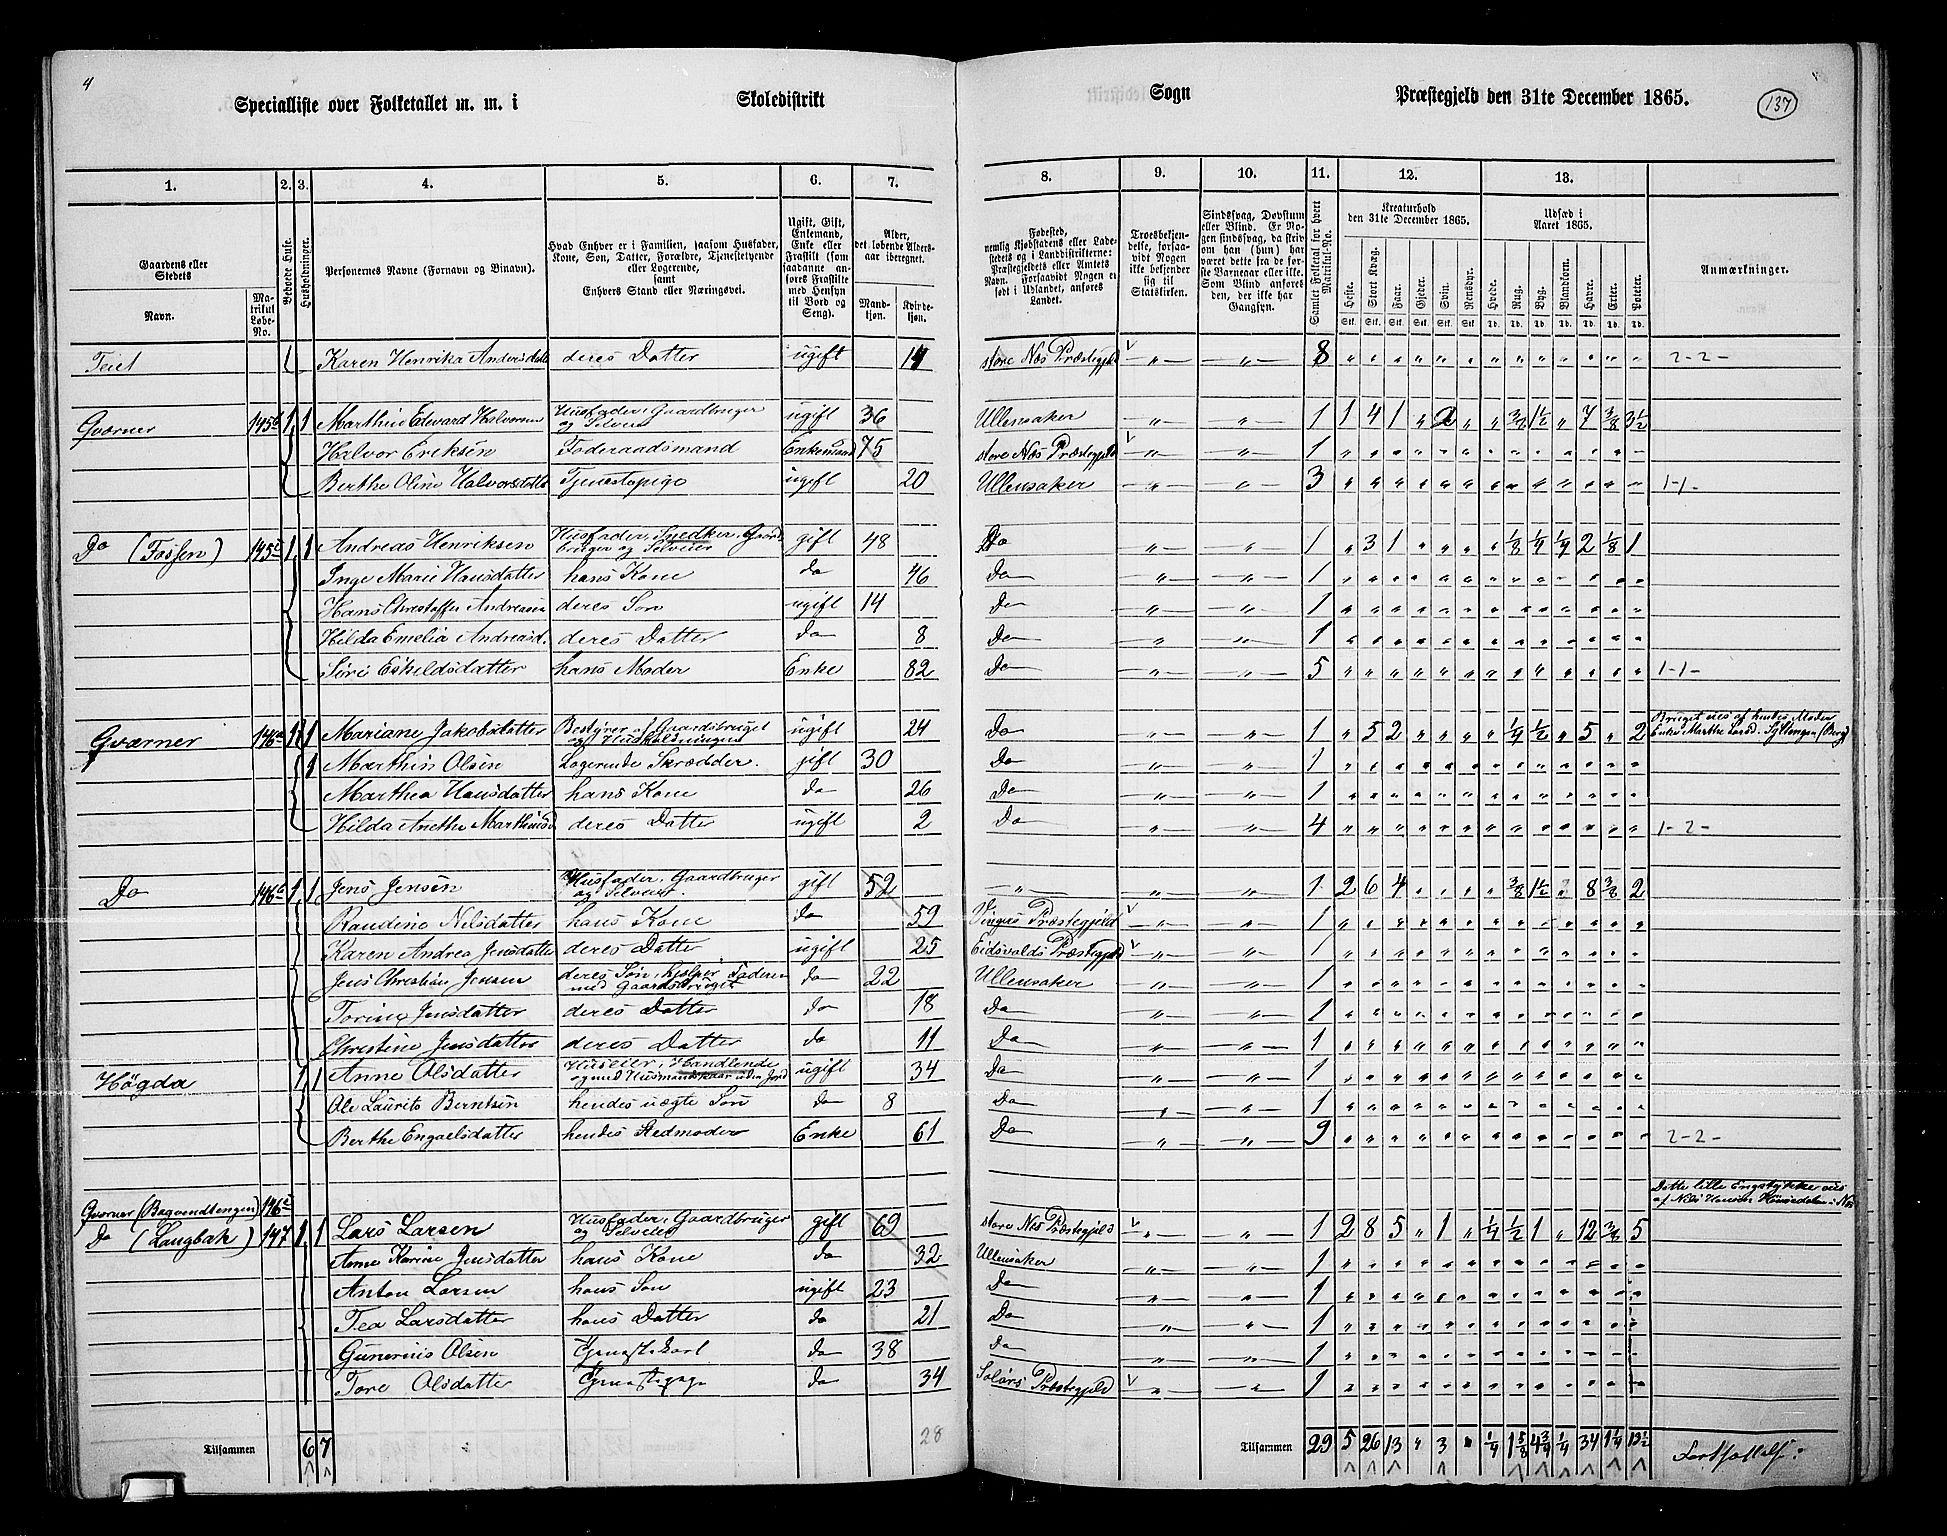 4
Specialliste over Folketallet m. m. i Skoledistrikt Sogn Præstegjeld den 31te December 1865.
137
1. 2. 3. 4. 5. 6. 7. 8. 9. 10. 11. 12. 13.
Gaardens eller Stedets
Navn.
Matrikul Løbe-No.
Beboede Huse.
Husholdninger.
Personernes Navne (Fornavn og Binavn).
Hvad Enhver er i Familien, saasom Husfader, Kone, Søn, Datter, Forældre, Tjenestetyende eller Logerende, samt Enhvers Stand eller Næringsvei.
Ugift, Gift, Enkemand, Enke eller Fraskilt (som saadanne anføres Fraskilte med Hensyn til Bord og Seng).
Alder, det løbende Aldersaar iberegnet.
Mandkjøn. Kvindekjøn.
Fødested, nemlig Kjøbstadens eller Ladestedets og i Landdistrikterne: Præstegjeldets eller Amtets Navn. Forsaavidt Nogen er født i Udlandet, anføres Landet.
Troesbekjendelse, forsaavidt Nogen ikke bekjender sig til Statskirken.
Sindssvag, Døvstum eller Blind. Er Nogen sindssvag, da skrives om han (hun) har været dette fra de første Barneaar eller ikke. Som Blind anføres den, der ikke har Gangsyn.
Samlet Folketal for hvert Matrikul-No.
Kreaturhold den 31te December 1865.
Heste. Stort Kvæg. Faar. Gjeder. Svin. Rensdyr.
Udsæd i Aaret 1865.
Hvede. Rug. Byg. Blandkorn. Havre. Erter. Poteter.
Anmærkninger.
Teiet 1 Karen Henrika Andersdatt deres Datter ugift 14 store Nes Præstegjeld 8 2-2-
Gværner 145b 1 1 Marthin Edevard Halvorsen Husfader, Gaardbruger og Selveier ugift 36 Ullensaker 1 1 4 1 " 2 " " 3/8 1 1/2 " 7 3/8 3 1/2
Halvor Eriksen Føderaadsmand Enkemand 75 store Nes Præstegjeld 1
Berthe Oline Halvorsdatter Tjenestepige ugift 20 Ullensaker 3 1-1-
Do (Fossen) 145c 1 1 Andreas Henriksen Husfader, Snedker, Gaardbruger og Selveier gift 48 Do 1 " 3 1 " " " " 1/8 1/4 1/4 2 1/8 1
Inge Marie Hansdatter hans Kone do 46 Do 1
Hans Christoffer Andreasen deres Søn ugift 14 Do 1
Hilda Emelia Andreasd. deres Datter do 8 Do 1
Siri Eskildsdatter hans Moder Enke 82 Do 5 1-1-
Gværner 146a 1 1 Mariane Jakobsdatter Bestyrer af Gaardsbruget og Husholdningen ugift 24 Do 1 " 5 2 " " " " 1/4 1/2 " 5 " 2 Bruget eies af hendes Moder Enke Marthe Larsd. Syltengen (Berg)
1 Marthin Olsen Logerende Skrædder. gift 30 Do 1
Marthea Hansdatter hans Kone do 26 Do 1
Hilda Anethe Marthinsd deres Datter ugift 2 Do 4 1-2-
Do 146b 1 1 Jens Jensen Husfader, Gaardbruger og Selveier. gift 52 " 1 2 6 4 " " " " 3/8 1 1/2 " 8 3/8 2
Randine Nilsdatter hans Kone do 59 Vingers Præstegjeld 1
Karen Andrea Jensdatter deres Datter ugift 25 Eidsvolds Præstegjeld 1
Jens Christian Jensen deres Søn, hjelper Faderen med Gaardsbruget do 22 Ullensaker 1
Torine Jensdatter deres Datter do 18 Do 1
Christine Jensdatter deres Datter do 11 Do 1
Høgda 1 1 Anne Olsdatter Huseier, Handlende og med Husmandskaar uden Jord ugift 34 Do 1
Ole Laurits Berntsen hendes uægte Søn do 8 Do 1
Berthe Engaelsdatter hendes Stedmoder Enke 61 Do 9 2-2-
Gværner (Bagvendtengen) 146c Dette lille Engstykke eies af Nils Hansen Hennedalen i Nes
Do (Langbak) 147 1 1 Lars Larsen Husfader, Gaardbruger og Selveier gift 69 store Nes Præstegjeld 1 2 8 5 " 1 " 1/4 1/2 1 " 12 3/4 5
Anne Karine Jensdatter hans Kone do 32 Ullensaker 1
Anton Larsen hans Søn ugift 23 Do 1
Tea Larsdatter hans Datter do 21 Do 1
Gunerius Olsen Tjenestekarl do 38 Do 1
Tore Olsdatter Tjenestepige do 34 Solørs Præstegjeld 1
Tilsammen 6 7 28 Tilsammen 29 5 26 13 " 3 " 1/4 1 5/8 4 3/4 1/4 34 1 1/4 13 1/2